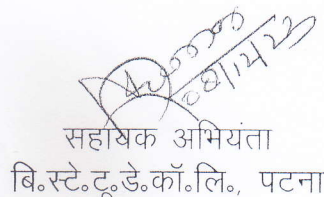 सहायक अभियंता
बि.स्टे.टू.डे.कॉ.लि., पटना